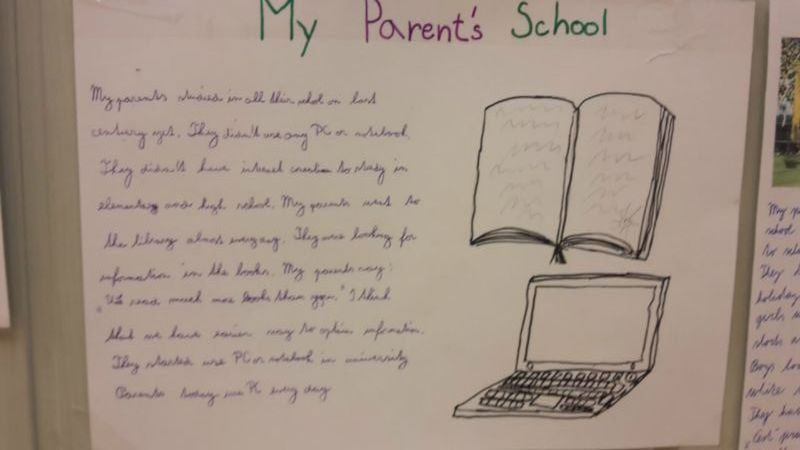 My Parent's School
My parents studied in all their school on last
century yet. They didn't use any PC or notebook.
They didn't have internet to study in
elementary and high school. My parents went to
the library almost everyday. They were looking for
information in the books. My parents say:
"We read much more books than you." I think
that we have easier way to obtain information.
They started use PC or notebook in university
Parents today use PC every day
My
school
to
They
holiday
girls
Boys
white
They